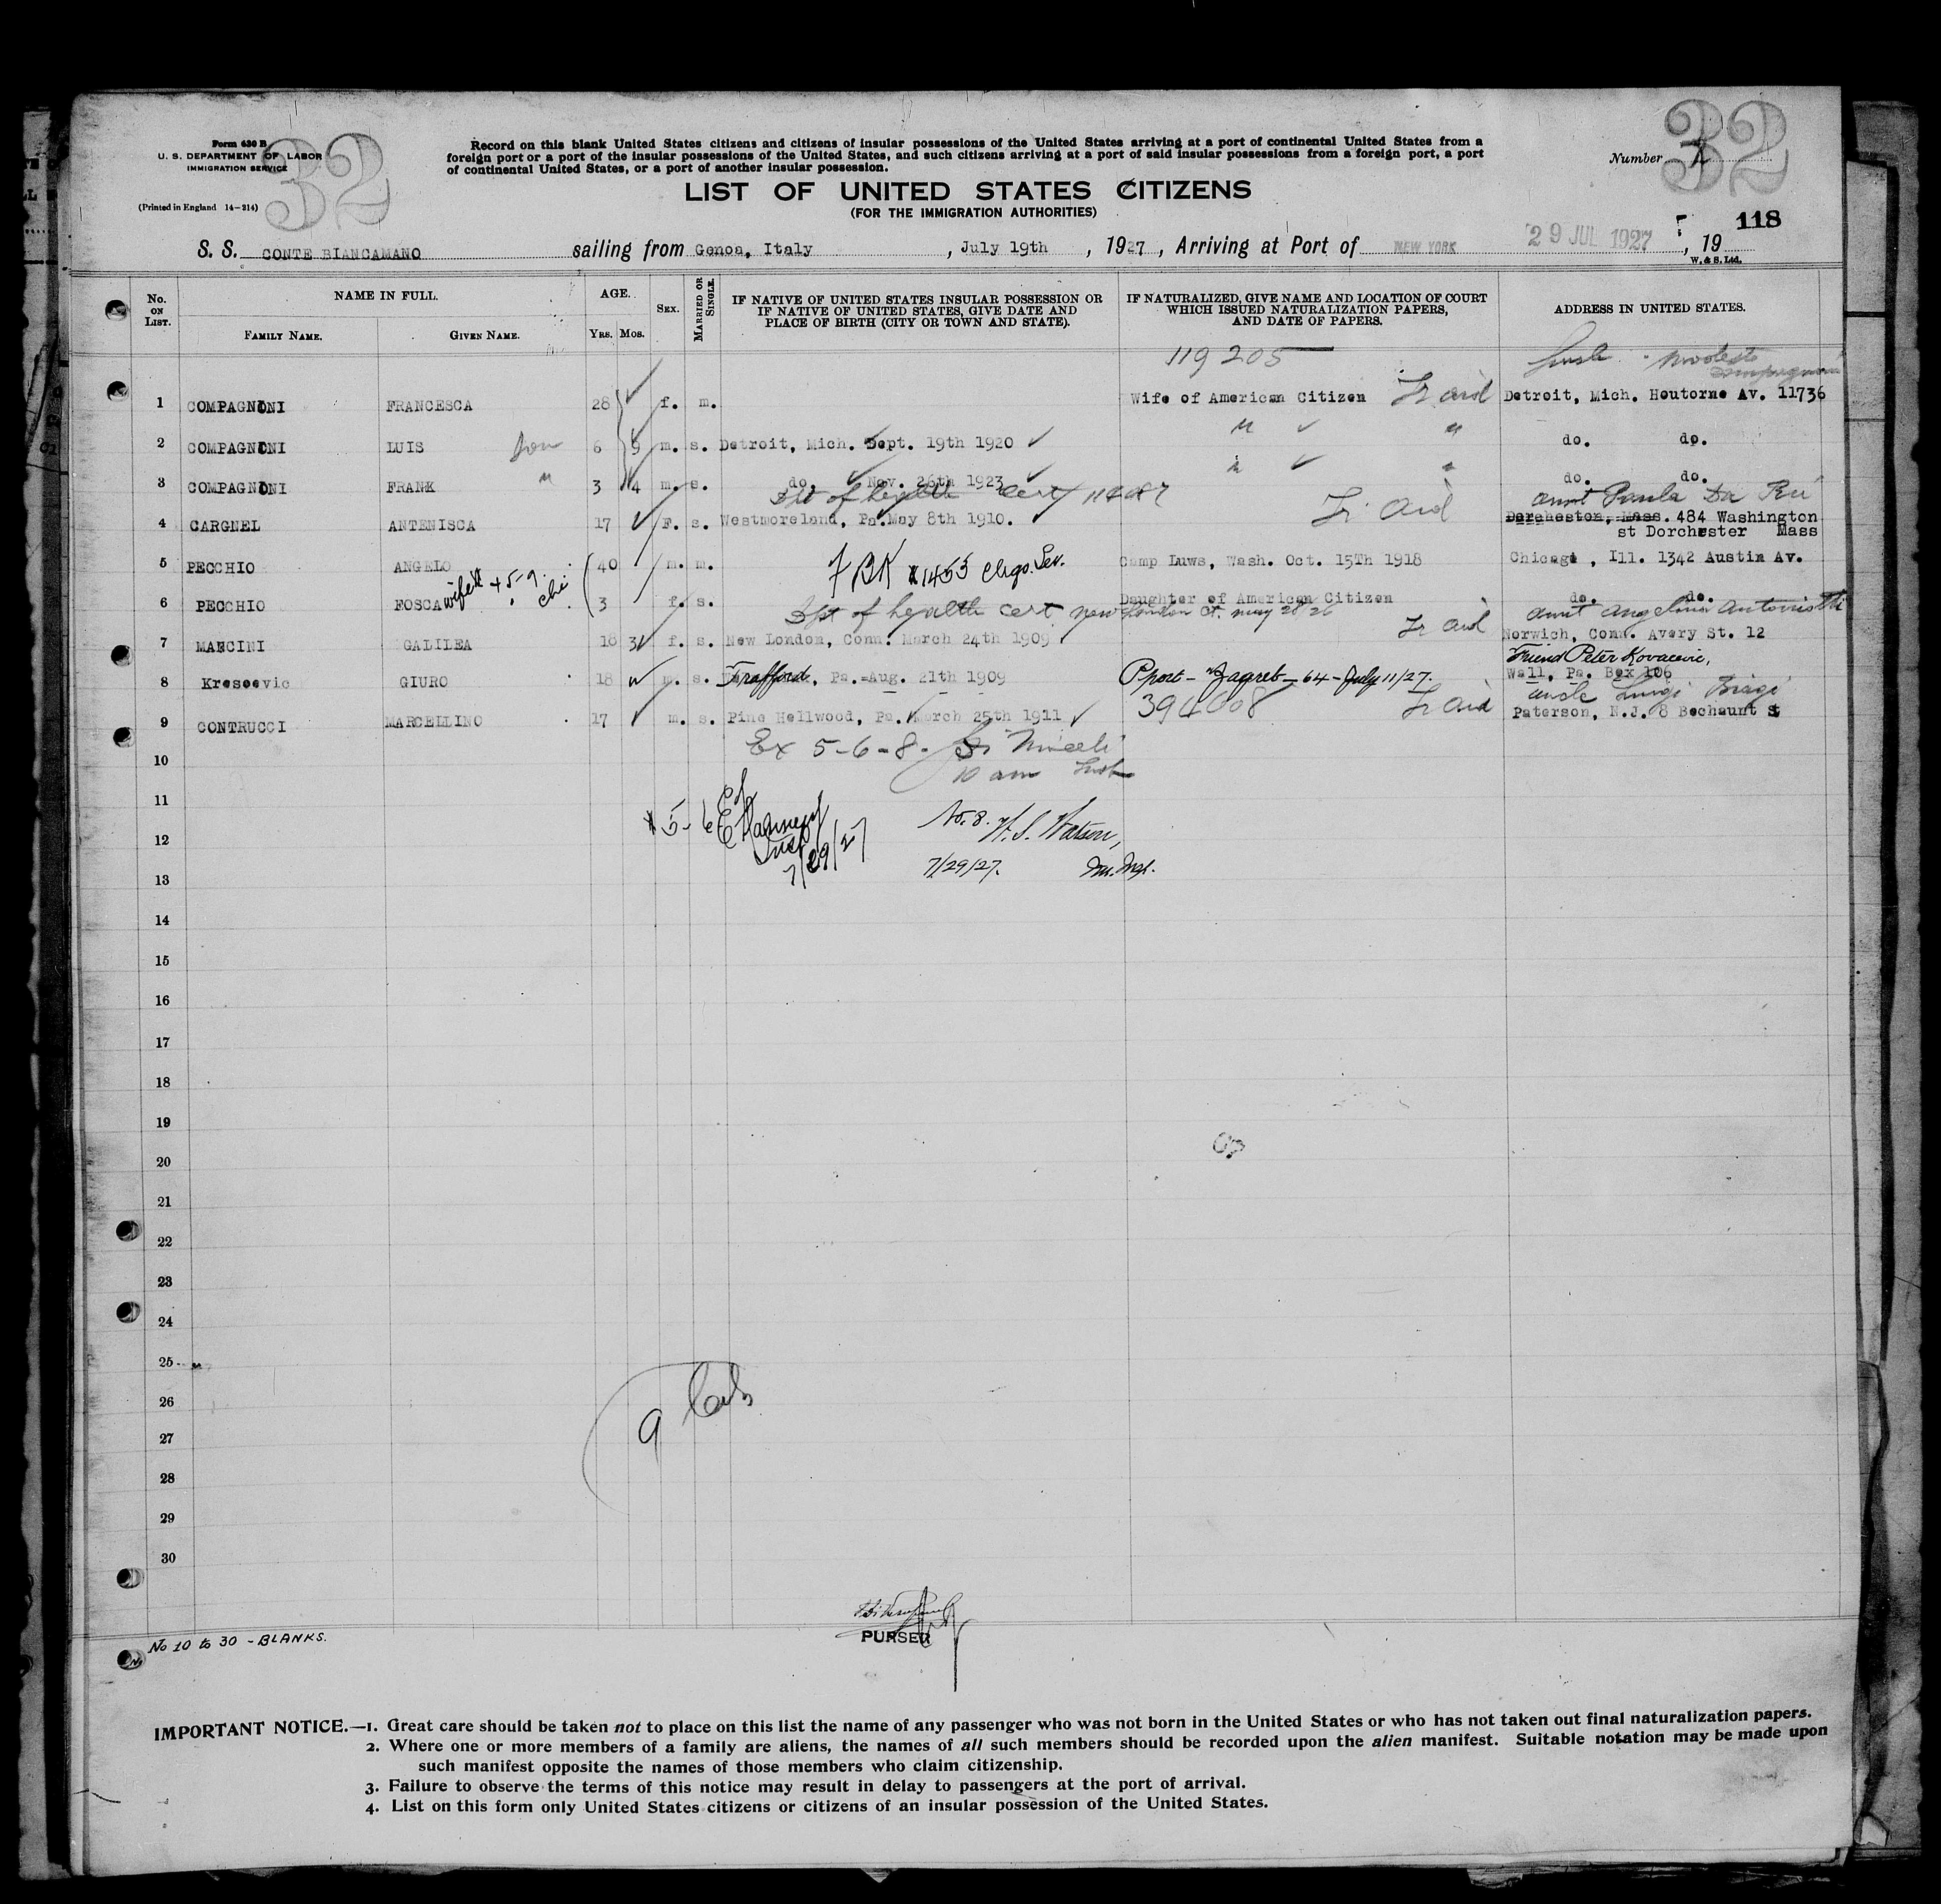 Form 630 B
U. S. DEPARTMENT OF LABOR
IMMIGRATION SERVICE
(Printed in England 14-314)
32
Record on this blank United States citizens and citizens of insular possessions of the United States arriving at a port of continental United States from a
foreign port or a port of the insular possessions of the United States, and such citizens arriving at a port of said insular possessions from a foreign port, a port
of continental United States, or a port of another insular possession.
Number
32
LIST OF UNITED STATES CITIZENS
(FOR THE IMMIGRATION AUTHORITIES)
118
S. S. CONTE BIANCAMANO sailing from Genoa, Italy, July 19th, 1927, Arriving at Port of NEW YORK 29 JUL 1927, 19
W. & S. Ltd.
No. ON LIST. NAME IN FULL. AGE. SEX. MARRIED OR SINGLE. IF NATIVE OF UNITED STATES INSULAR POSSESSION OR IF NATIVE OF UNITED STATES, GIVE DATE AND PLACE OF BIRTH (CITY OR TOWN AND STATE). IF NATURALIZED, GIVE NAME AND LOCATION OF COURT WHICH ISSUED NATURALIZATION PAPERS, AND DATE OF PAPERS. ADDRESS IN UNITED STATES.
FAMILY NAME. GIVEN NAME. YRS. MOS.
119205 Modesto
1 COMPAGNONI FRANCESCA 28 f. m. Wife of American Citizen Detroit, Mich. Houtorne Av. 11736
2 COMPAGNONI LUIS Son 6 9 m. s. Detroit, Mich. Sept. 19th 1920 " " do. do.
3 COMPAGNONI FRANK " 3 4 m. s. do. Nov. 26th 1923 " " do. do.
of health cert aunt Paula Da
4 CARGNEL ANTENISCA 17 F. s. Westmoreland, Pa. May 8th 1910. Dorcheston, Mass. 484 Washington
st Dorchester Mass
5 PECCHIO ANGELO 40 m. m. Camp Luws, Wash. Oct. 15Th 1918 Chicago, Ill. 1342 Austin Av.
6 PECCHIO FOSCA 3 f. s. Daughter of American Citizen do. do.
of health cert new London Ct. may 28 26 aunt Angelina
7 MANCINI GALILEA 18 3 f. s. New London, Conn. March 24th 1909 Norwich, Conn. Avery St. 12
Friend Peter Kovacevic,
8 Kresoevic GIURO 18 m. s. Trafford, Pa. Aug. 21th 1909 Pport - Zagreb - 64 - July 11/27. Wall, Pa. Box 106
uncle Luigi Biagi
9 CONTRUCCI MARCELLINO 17 m. s. Pine Hellwood, Pa. March 25th 1911 Paterson, N.J. 8 Bechaunt St
10 Ex 5-6-8.
10 am
11
No. 8. W. S. Watson,
12
7/29/27
7/29/27. Im. Insp.
13
14
15
16
17
18
19
20
21
22
23
24
25
26
27
9
28
29
30
PURSER
No 10 to 30 - BLANKS.
IMPORTANT NOTICE.—1. Great care should be taken not to place on this list the name of any passenger who was not born in the United States or who has not taken out final naturalization papers.
2. Where one or more members of a family are aliens, the names of all such members should be recorded upon the alien manifest. Suitable notation may be made upon
such manifest opposite the names of those members who claim citizenship.
3. Failure to observe the terms of this notice may result in delay to passengers at the port of arrival.
4. List on this form only United States citizens or citizens of an insular possession of the United States.